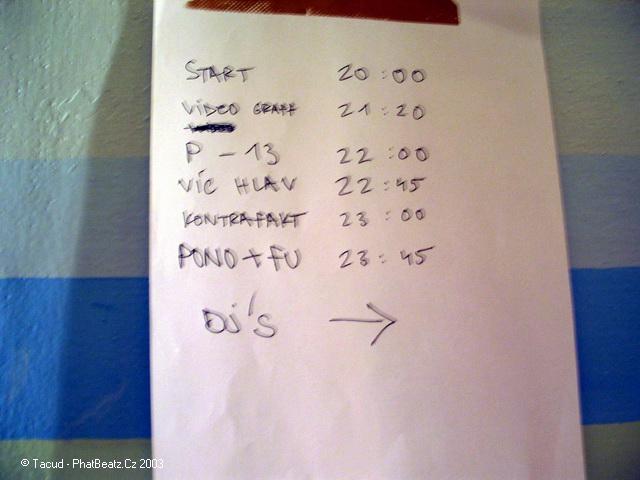 START 20:00
VIDEO GRAFF 21:20
P - 13 22:00
VÍC HLAV 22:45
KONTRAFAKT 23:00
PONO + FU 23:45
DJ'S →
© Tacud - PhatBeatz.Cz 2003